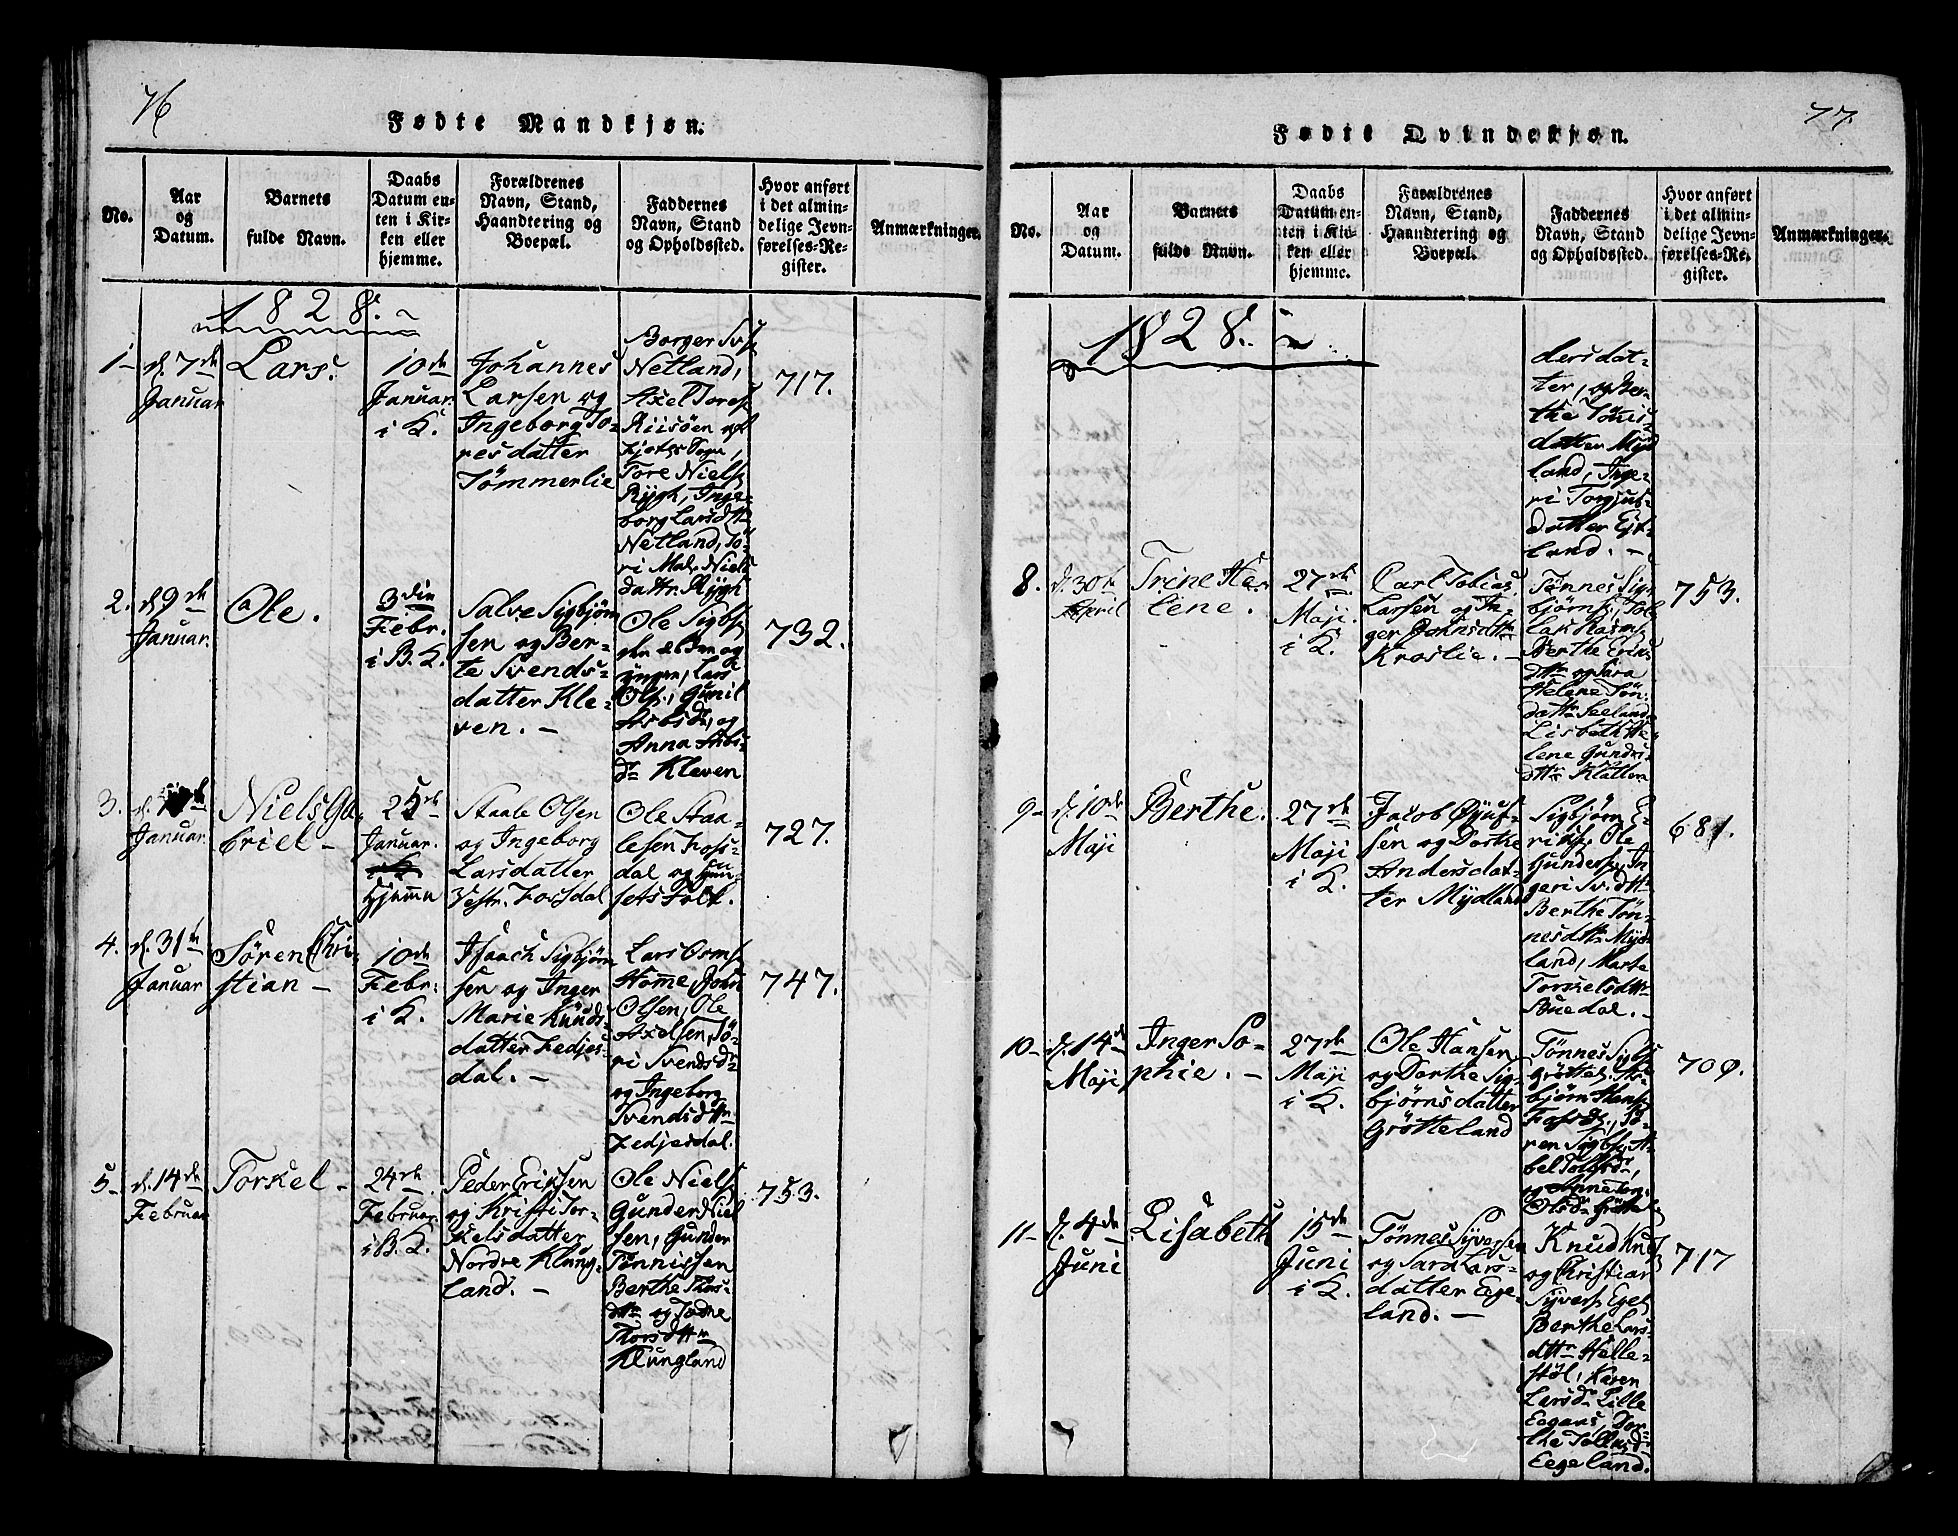 76
Fødte Mandkjøn.
No.
Aar
og
Datum.
Barnets
fulde Navn.
Daabs
Datum en-
ten i Kir-
ken eller
hjemme.
Forældrenes
Navn, Stand,
Haandtering og
Boepæl.
Faddernes
Navn, Stand
og Opholdssted.
Hvor anført
i det almin-
delige Jevn-
førelses-Re-
gister.
Anmærkninger.
1828.
1-
d. 7de
Januar
Lars.
10de
Januar.
i K.
Johannes
Larsen og
Ingeborg To-
resdatter
Tömmerlie
Borger
Netland,
Axel Tores.
Riisöen
Tore Niels.
Rÿgh, Inge-
borg Larsdtr
Netland,
Niels
datr. Rÿgh
717.
2.
d. 9de
Januar.
Ole.
3die
Febr.
i B. K.
Salve Sigbjörn
sen og Ber-
te Svends-
datter Kle-
ven. -
Ole Sigbs.
den ældre og
ÿngere, Lars
Ols., Gunil
og
Anna
dr Kleven
732.
3.
Januar.
Niels Ga-
briel -
25de
Januar.
Hjemme
Staale Olsen
og Ingeborg
Larsdatter
Vestr. Fosdal
Ole Staa-
lesen Fos-
dal og Huu-
sets Folk.
727.
4.
d. 31te
Januar
Sören Chri-
stian -
10de
Febr.
i K.
Isaach Sigbjörn
sen og Inger
Marie Knuds-
datter Fedjes-
dal. -
Lars Orms.
Home, John
Olsen, Ole
Axelsen, Sö-
ri Svendsdr
og Ingeborg
Svendsdtr
Fedjesdal.
747.
5-
d. 14de
Februar
Torkel -
24de
Februar.
i B. K.
Peder Eriksen
og Kristi Tor-
kelsdatter
Nordre Klung-
land. -
Ole Niels.
Gunder Niel
sen, Gunder
Tönnissen
Berthe Thors-
dtr og Todne
Thorsdtr
Klungland
753.
77.
Fødte Qvindekjøn.
No.
Aar
og
Datum.
Barnets
fulde Navn.
Daabs
Datum en-
ten i Kir-
ken eller
hjemme.
Forældrenes
Navn, Stand,
Haandtering og
Boepæl.
Faddernes
Navn, Stand
og Opholdssted.
Hvor anført
i det almin-
delige Jevn-
førelses-Re-
gister.
Anmærkninger.
1828.
dersdat-
ter, og Ber-
the Tönis-
datter Mÿd
land, Inge-
ri Torgius-
datter Ejt-
land. -
8.
d. 30te
April
Trine He-
lene.
27de
Maji.
i K.
Carl Tobias
Larsen og In-
ger Johnsdtr
Kroslie. -
Tönnes Sig-
björns.,
Berthe Eriks
dtr og Sara
Helene Tön.
dattr Seeland
Lisbeth He-
lene Gunds
dtr Klatten
753.
9-
d. 10de
Maji
Berthe.
27de
Maji
i K.
Jacob Öjuf-
sen og Dorthe
Andersdat-
ter Mÿdland
Sigbjörn E-
riks., Ole
Gunders., In
geri Sv.dtr
Berthe Tön-
nesdtr Mÿd
land, Marte
Torkelsdtr
Stuedal. -
681.
10-
d. 14de
Maji
Inger So-
phie. -
27de
Maji
i K.
Ole Hansen
og Dorthe Sig-
björnsdatter
Grötteland
Tönnes Sigbs.
Gröttel.
björn Hans.
Fosdl., Sö-
ren Sigbs., A-
bel
og
Olsdr Gröttel.
709.
11-
d. 4de
Juni
Lisabeth
15de
Juni
i K.
Tönnes Sÿversen
og Sara Lars-
datter Ege-
land. -
Knud Knuds.
og Christian
Sÿvers. Egel.
Berthe Lars-
dtr Helle-
stöl, Karen
Larsdr Lille
Dor-
the
Eegeland.
717